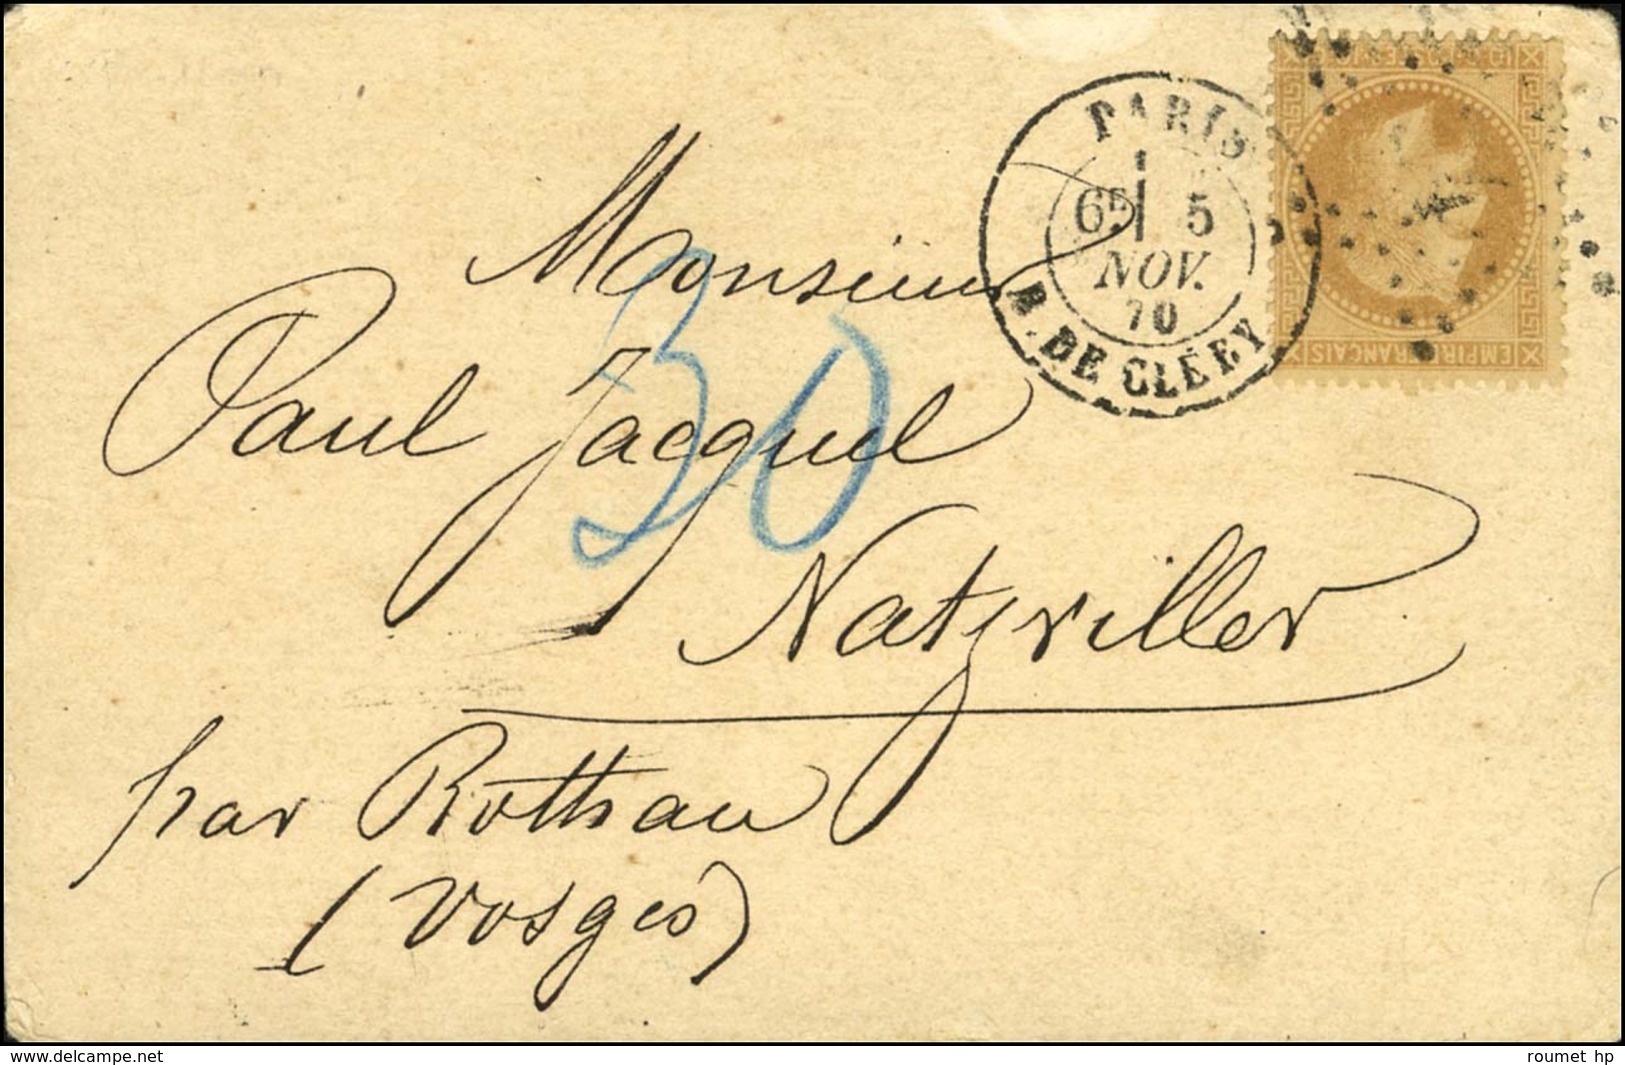 PARIS
6E 5
NOV.
70
R. DE CLÉRY
EMPIRE FRANCAIS
Monsieur
30
Paul Jacquel
Natzviller
par Rothau
(Vosges)
www.delcampe.net
roumet hp